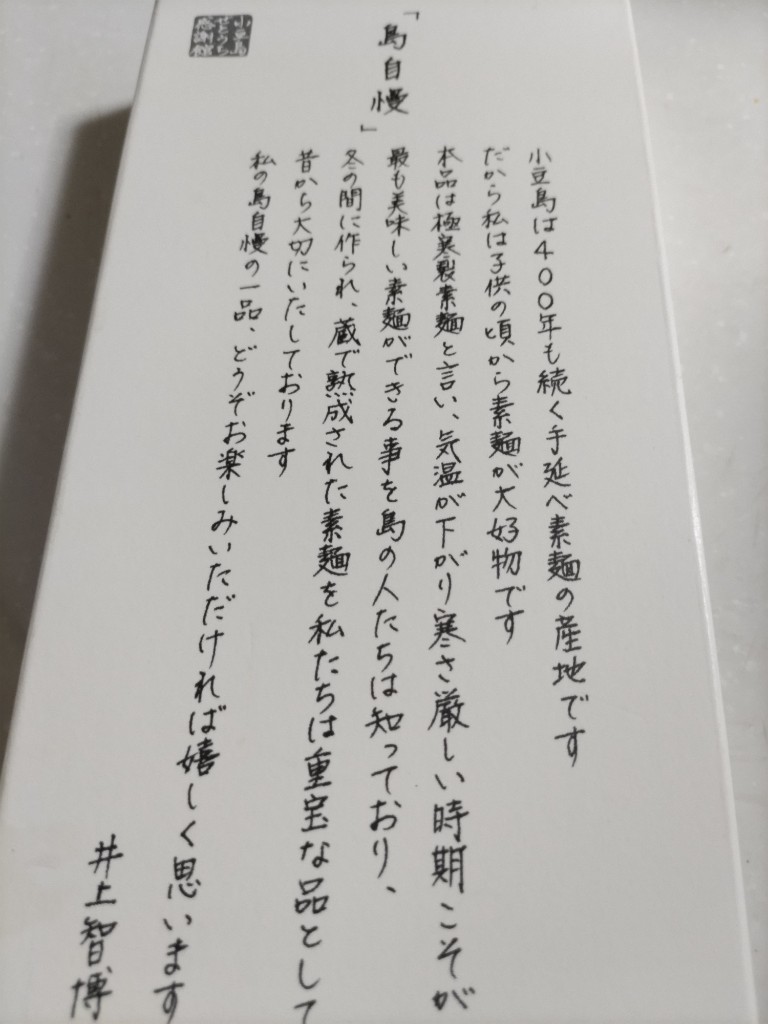 小豆島
せとうち
感謝館
「島自慢」
小豆島は400年も続く手延べ素麺の産地です
だから私は子供の頃から素麺が大好物です
本品は極寒製素麺と言い、気温が下がり寒さ厳しい時期こそが
最も美味しい素麺ができる事を島の人たちは知っており、
冬の間に作られ、蔵で熟成された素麺を私たちは重宝な品として
昔から大切にいたしております
私の島自慢の一品、どうぞお楽しみいただければ嬉しく思います
井上智博